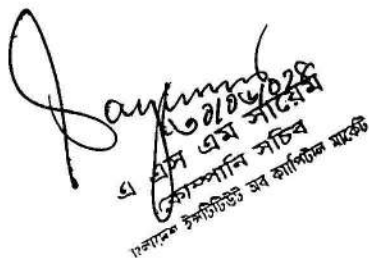 Sayem
৩০/০৬/০২৫
এ এস এম সায়েম
কোম্পানি সচিব
বাংলাদেশ ইন্সটিটিউট অব ক্যাপিটাল মার্কেট